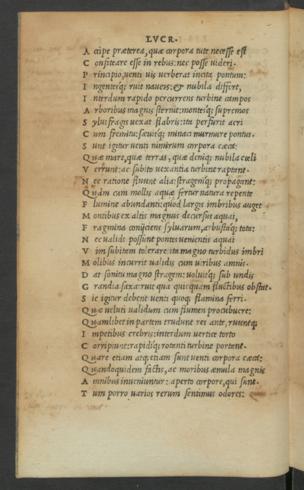 LVCR.
A ccipe præterea, quæ corpora tute necesse est
C onfiteare esse in rebus: nec posse uideri.
P rincipio uenti uis uerberat incita pontum:
I ngenteisq; ruit naueis: & nubila differt,
I nterdum rapido percurrens turbine campos
A rboribus magnis sternit: monteisq; supremos
S yluifragis uexat flabris: ita perfurit acri
C um fremitu: sæuitq; minaci murmure pontus.
S unt igitur uenti nimirum corpora cæca:
Q uæ mare, quæ terras, quæ deniq; nubila cœli
V errunt: ac subito uexantia turbine raptant.
N ec ratione fluunt alia: stragemq; propagant:
Q uàm cum mollis aquæ fertur natura repente
F lumine abundanti: quod largis imbribus auget
M ontibus ex altis magnus decursus aquai,
F ragmina conijciens syluarum, arbustaq; tota:
N ec ualidi possunt pontes uenientis aquai
V im subitam tolerare: ita magno turbidus imbri
M olibus incurrit ualidis cum uiribus amnis.
D at sonitu magno stragem: uoluitq; sub undis
G randia saxa: ruit qua quicquam fluctibus obstat.
S ic igitur debent uenti quoq; flamina ferri.
Q uæ ueluti ualidum cum flumen procubuere:
Q uamlibet in partem trudunt res ante, ruuntq;
I mpetibus crebris: interdum uertice torto
C orripiunt: rapidiq; rotanti turbine portant.
Q uare etiam atq; etiam sunt uenti corpora cæca:
Q uandoquidem factis, ac moribus æmula magnis
A mnibus inueniuntur: aperto corpore, qui sunt.
T um porro uarios rerum sentimus odores: